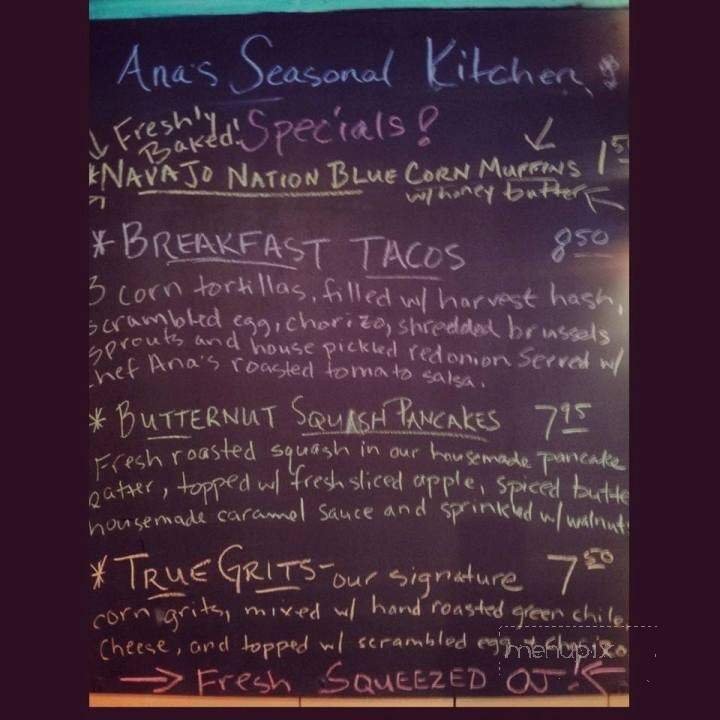 Ana's Seasonal Kitchen
Freshly Baked! Specials!
*NAVAJO NATION BLUE CORN MUFFINS 1 5
w/ honey butter
* BREAKFAST TACOS 8 50
3 corn tortillas, filled w/ harvest hash,
scrambled egg, chorizo, shredded brussels
sprouts and house pickled red onion served w/
hef Ana's roasted tomato salsa.
* BUTTERNUT SQUASH PANCAKES 7 95
Fresh roasted squash in our housemade pancake
batter, topped w/ fresh sliced apple, spiced butte
housemade caramel sauce and sprinkled w/ walnut
* TRUE GRITS - our signature 7 50
corn grits, mixed w/ hand roasted green chile,
cheese, and topped w/ scrambled egg
menupix
→ Fresh SQUEEZED OJ! ←